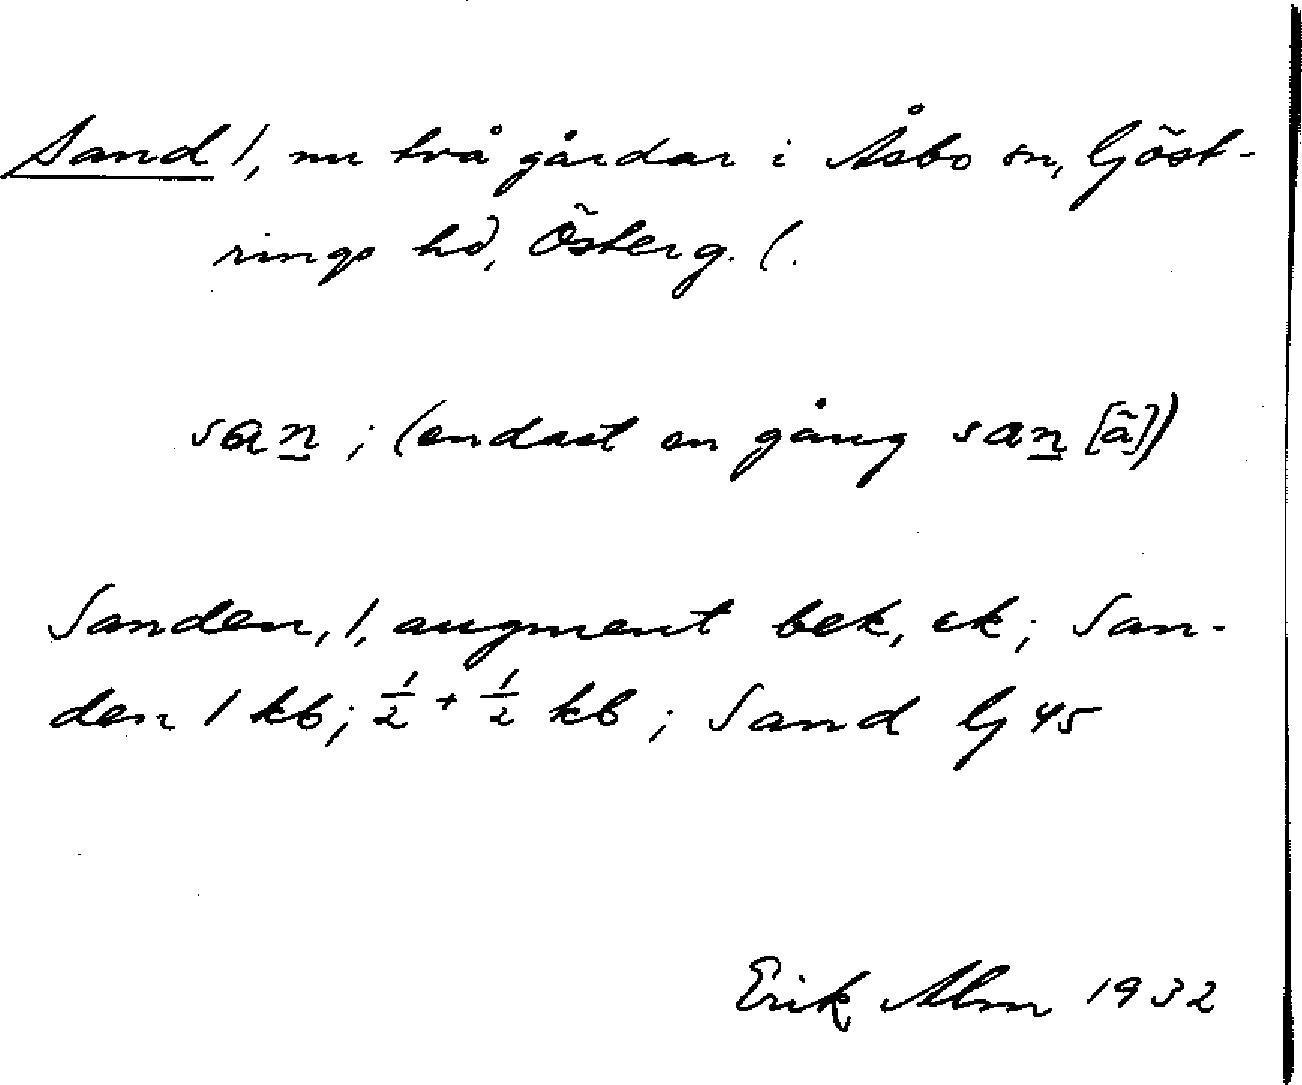 Sand 1, nu två gårdar i Åsbo sn, Göst-
rings hd, Österg. l.
san ; (endast en gång san [ã])
Sanden, 1, augment bek, ek; San-
den 1 kb; 1/2 + 1/2 kb ; Sand Gj 45
Erik Alm 1932